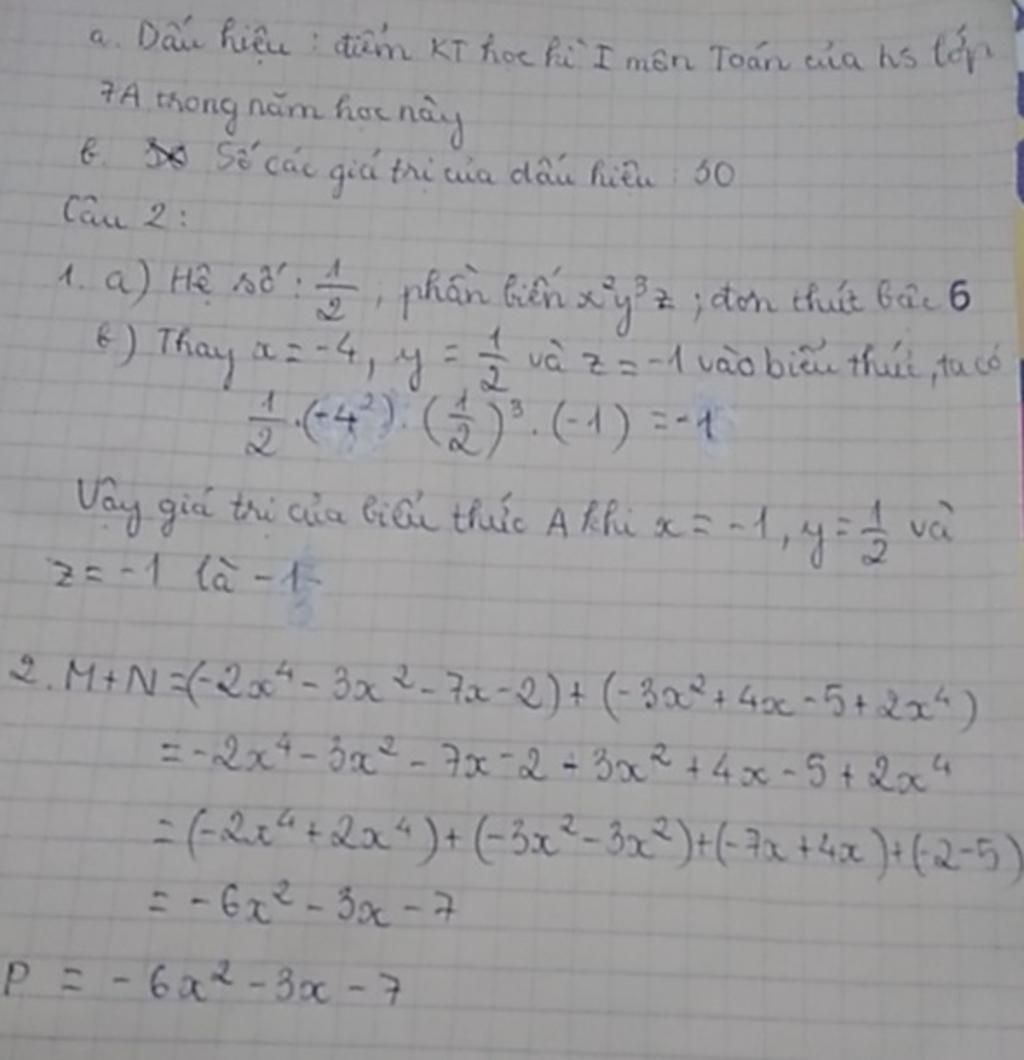 a. Dấu hiệu : điểm KT học kì I môn Toán của hs lớp
7A trong năm học này
b. Số các giá trị của dấu hiệu : 50
Câu 2 :
1. a) Hệ số : 1/2 , phần biến x²y³z ; đơn thức bậc 6
b) Thay x = -4, y = 1/2 và z = -1 vào biểu thức, ta có
1/2 . (-4²) . (1/2)³ . (-1) = -1
Vậy giá trị của biểu thức A khi x = -1, y = 1/2 và
z = -1 là -1
2. M+N = (-2x⁴ - 3x² - 7x - 2) + (-3x² + 4x - 5 + 2x⁴)
= -2x⁴ - 3x² - 7x - 2 - 3x² + 4x - 5 + 2x⁴
= (-2x⁴ + 2x⁴) + (-3x² - 3x²) + (-7x + 4x) + (-2-5)
= -6x² - 3x - 7
P = -6x² - 3x - 7